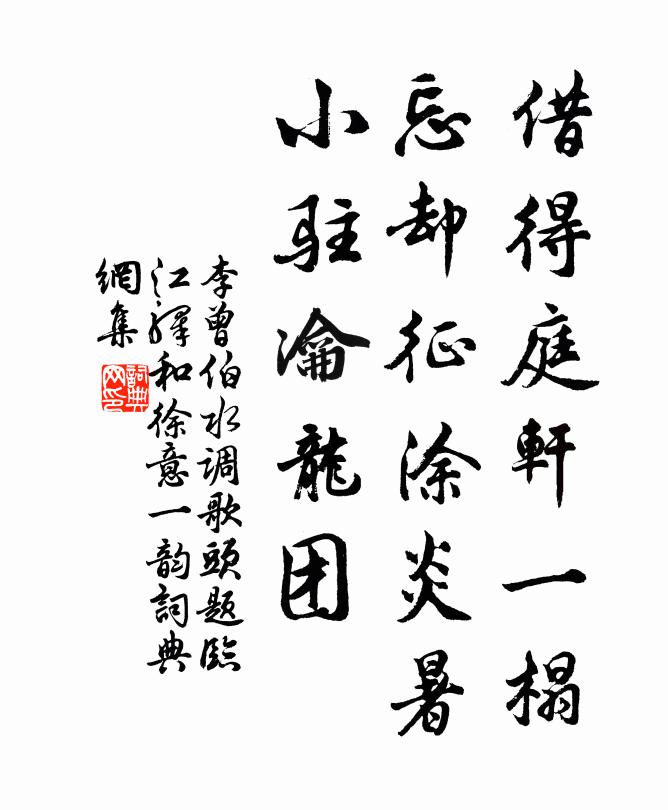 借得庭軒一榻
忘却征涂炎暑
小駐瀹龍团
李曾伯水调歌頭题臨
江驛和徐意一韵詞典
網集
詞典
网印